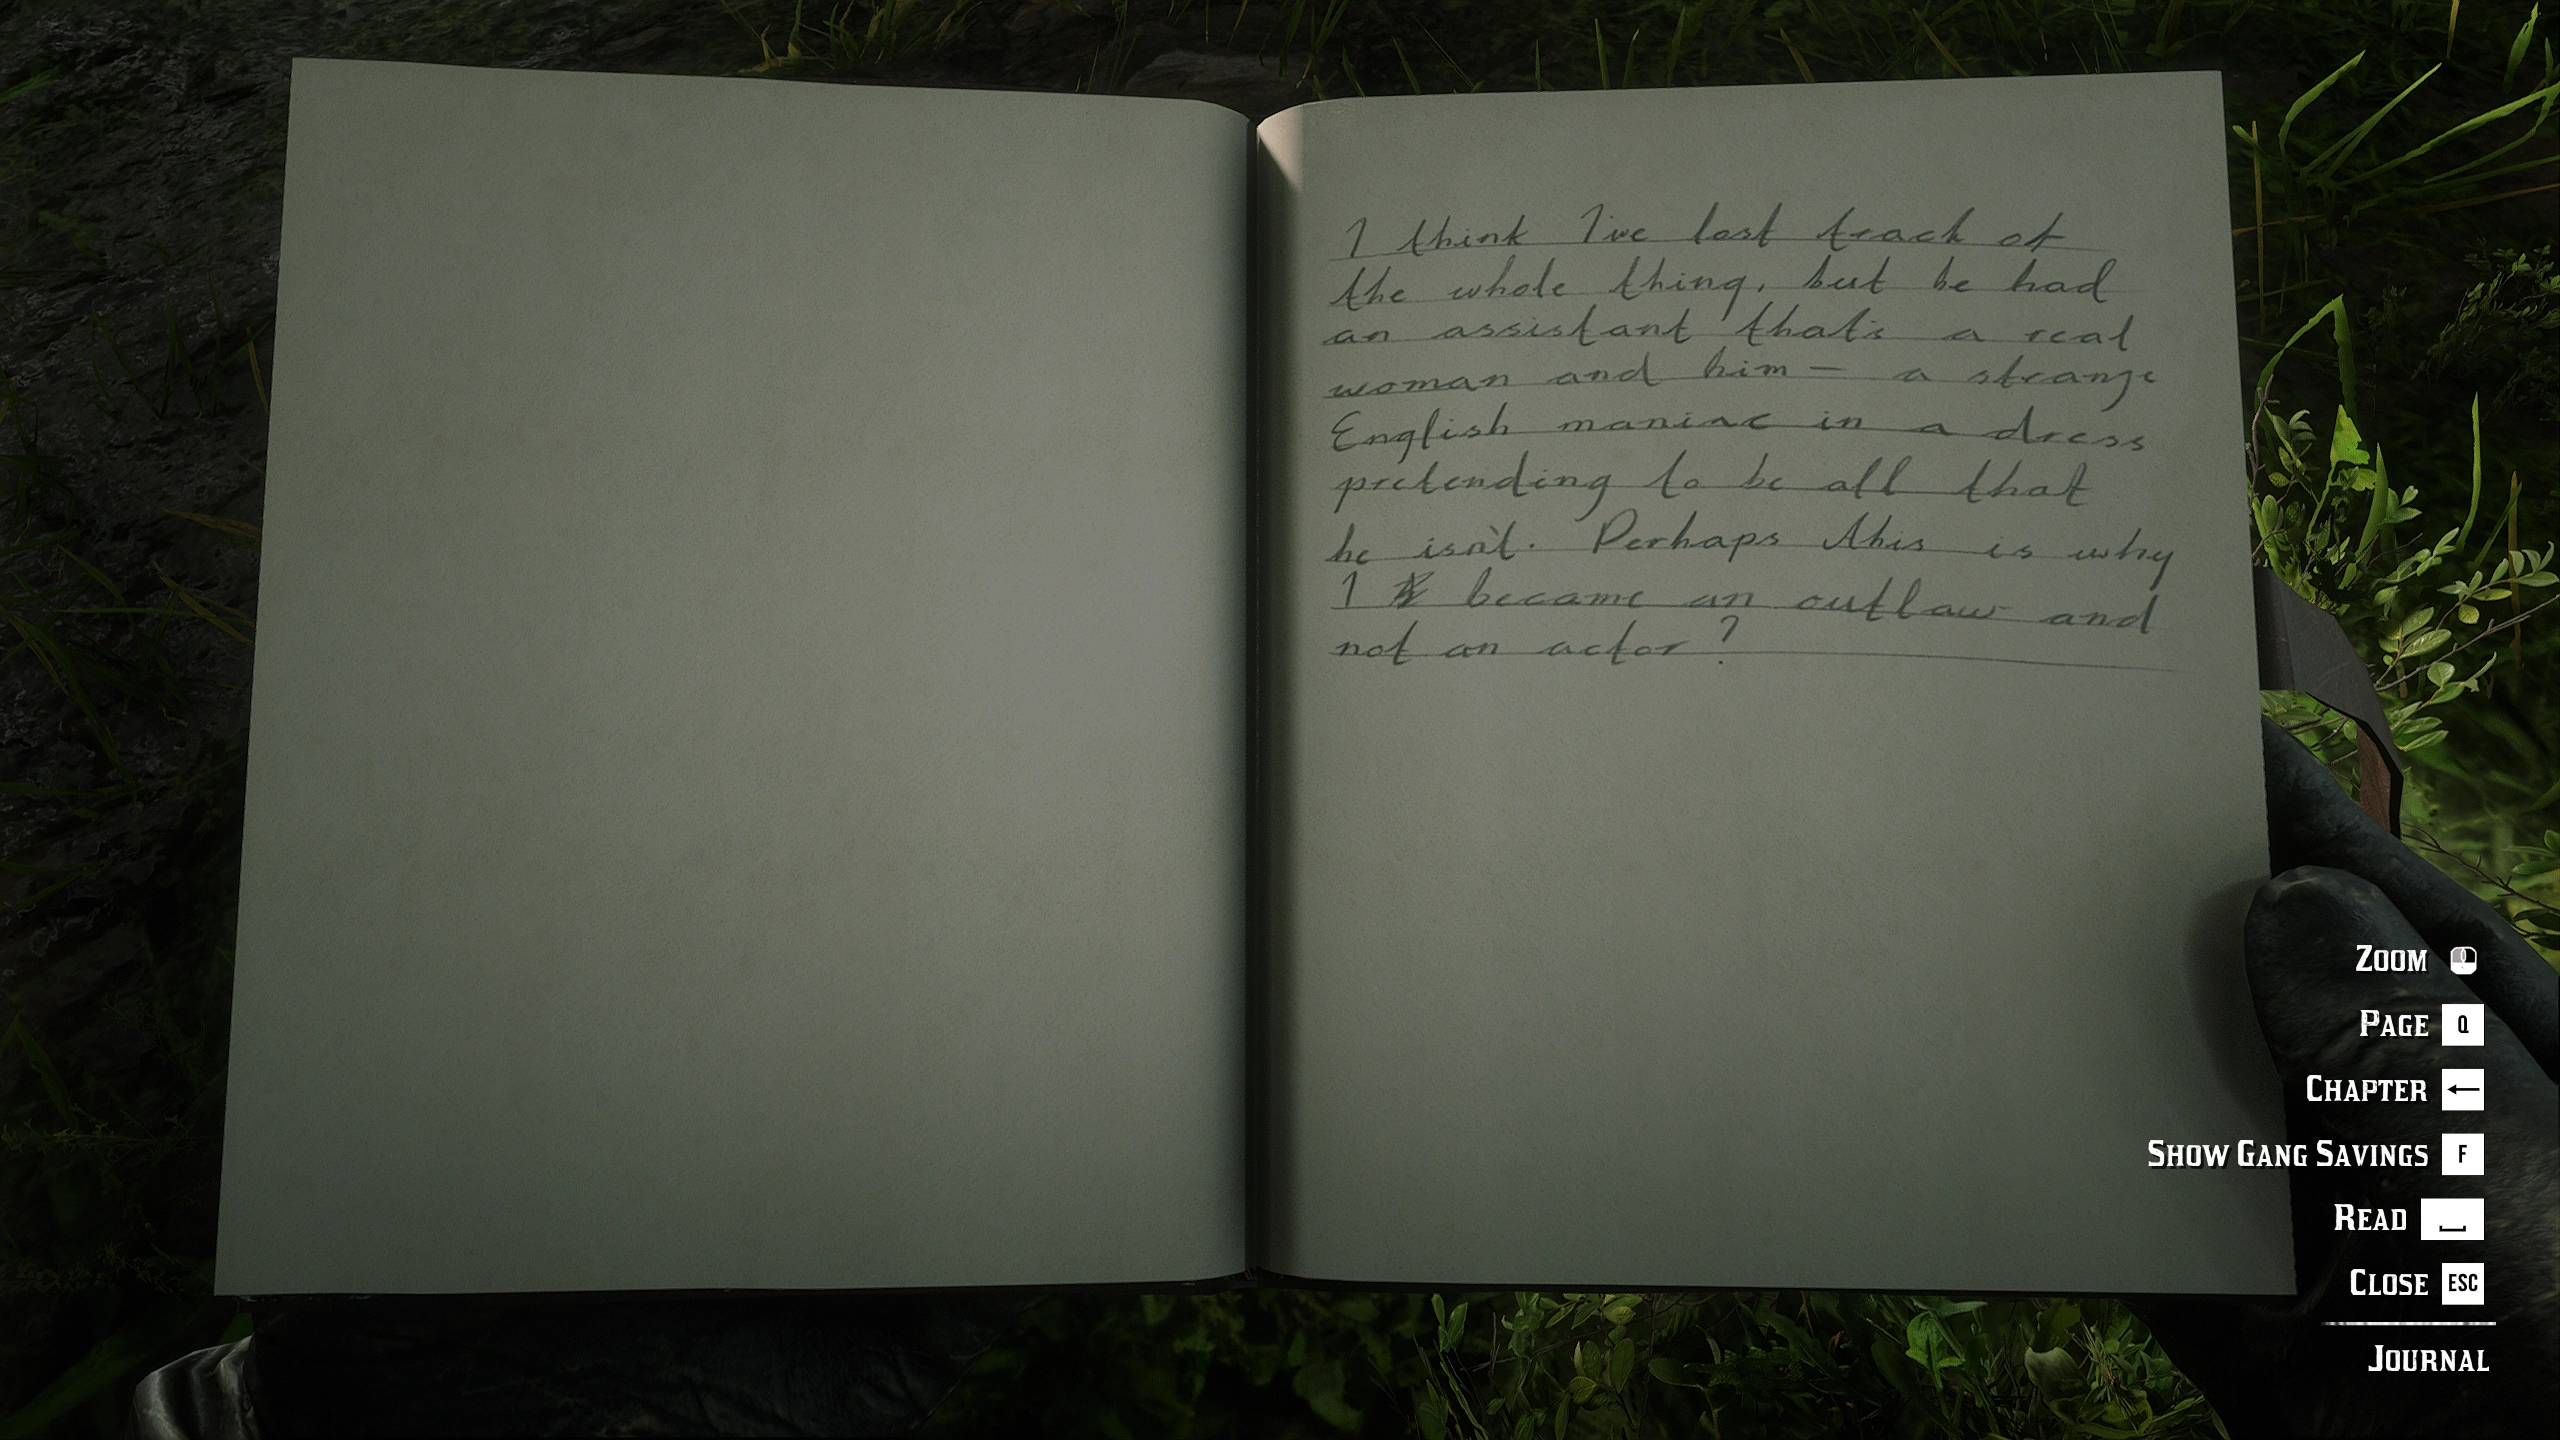 I think I've lost track of
the whole thing, but he had
an assistant that's a real
woman and him — a strange
English maniac in a dress
pretending to be all that
he isn't. Perhaps this is why
I became an outlaw and
not an actor?
ZOOM
PAGE Q
CHAPTER ←
SHOW GANG SAVINGS F
READ
CLOSE ESC
JOURNAL